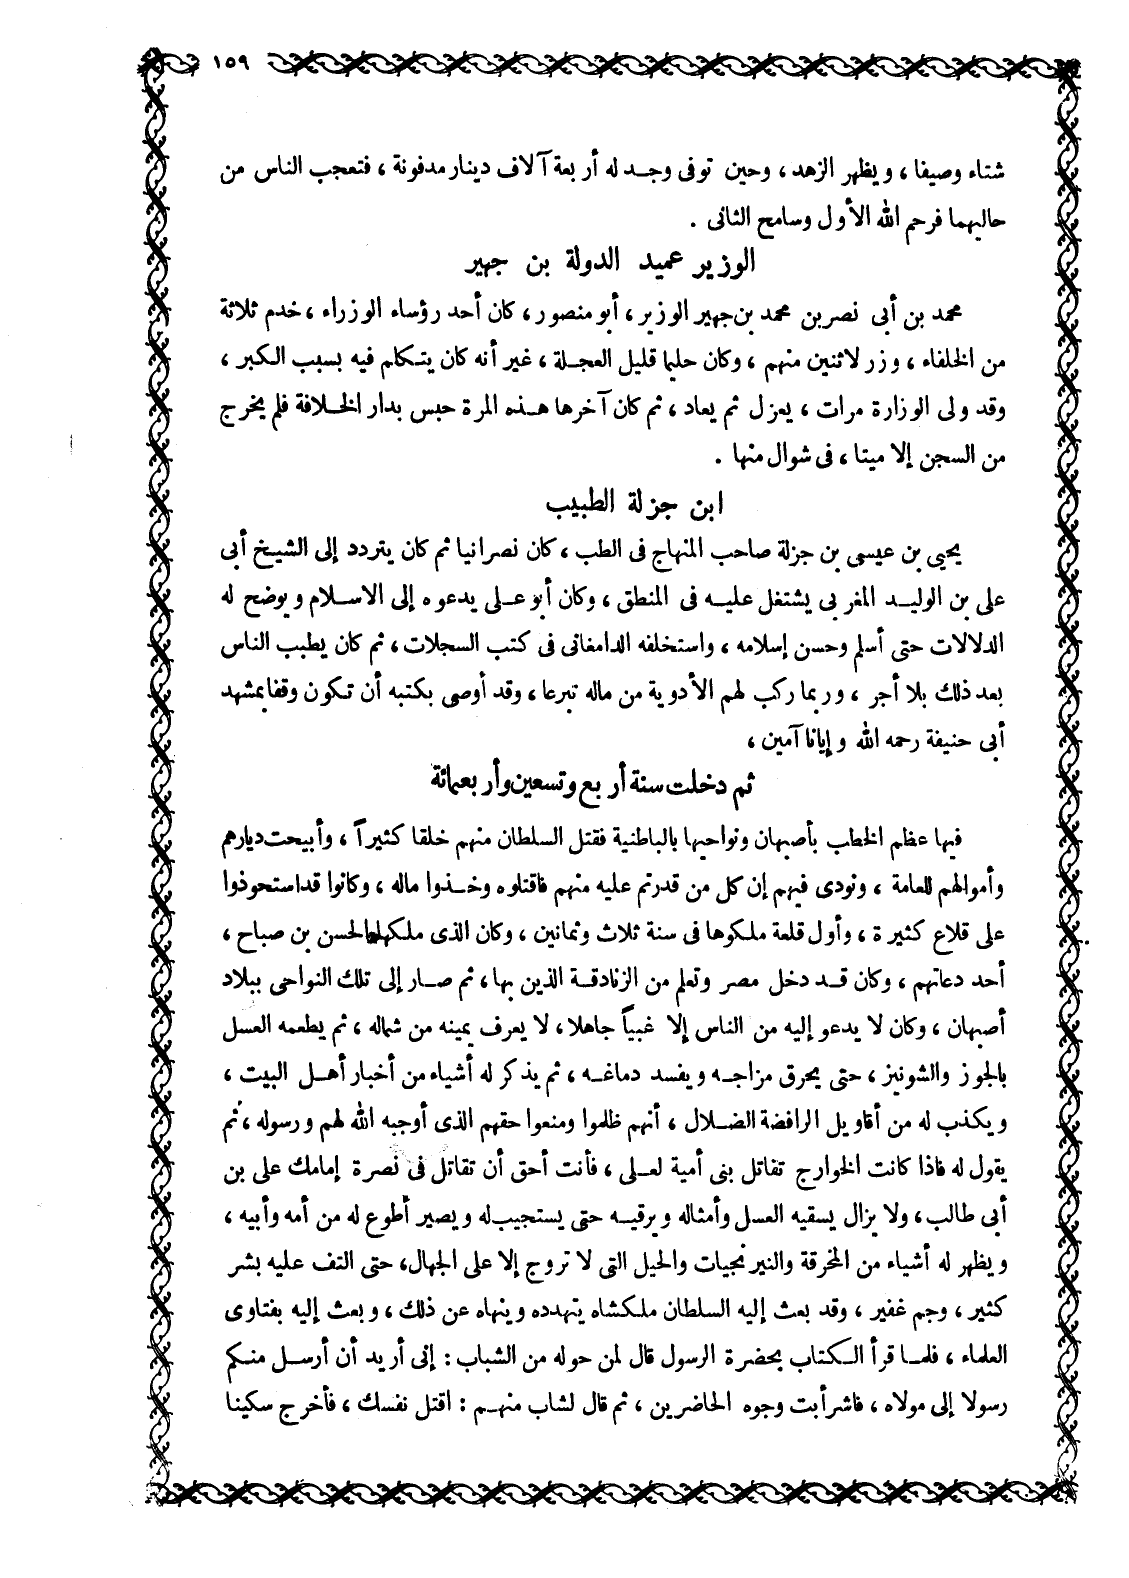 ١٥٩
شتاء وصيفا ، ويظهر الزهد ، وحين توفى وجد له أربعة آلاف دينار مدفونة ، فتعجب الناس من
حاليهما فرحم الله الأول وسامح الثانى .
الوزير عميد الدولة بن جهير
محمد بن أبى نصر بن محمد بن جهير الوزير ، أبو منصور ، كان أحد رؤساء الوزراء ، خدم ثلاثة
من الخلفاء ، وزر لاثنين منهم ، وكان حليما قليل العجلة ، غير أنه كان يتكلم فيه بسبب الكبر ،
وقد ولى الوزارة مرات ، يعزل ثم يعاد ، ثم كان آخرها هذه المرة حبس بدار الخلافة فلم يخرج
من السجن إلا ميتا ، فى شوال منها .
ابن جزلة الطبيب
يحيى بن عيسى بن جزلة صاحب المنهاج فى الطب ، كان نصرانيا ثم كان يتردد إلى الشيخ أبى
على بن الوليد المغربى يشتغل عليه فى المنطق ، وكان أبو على يدعوه إلى الاسلام ويوضح له
الدلالات حتى أسلم وحسن إسلامه ، واستخلفه الدامغانى فى كتب السجلات ، ثم كان يطبب الناس
بعد ذلك بلا أجر ، وربما ركب لهم الأدوية من ماله تبرعا ، وقد أوصى بكتبه أن تكون وقفا بمشهد
أبى حنيفة رحمه الله وإيانا آمين ،
ثم دخلت سنة أربع وتسعين وأربعمائة
فيها عظم الخطب بأصبهان ونواحيها بالباطنية فقتل السلطان منهم خلقا كثيراً ، وأبيحت ديارهم
وأموالهم للعامة ، ونودى فيهم إن كل من قدرتم عليه منهم فاقتلوه وخذوا ماله ، وكانوا قد استحوذوا
على قلاع كثيرة ، وأول قلعة ملكوها فى سنة ثلاث وثمانين ، وكان الذى ملكها الحسن بن صباح ،
أحد دعاتهم ، وكان قد دخل مصر وتعلم من الزنادقة الذين بها ، ثم صار إلى تلك النواحى ببلاد
أصبهان ، وكان لا يدعو إليه من الناس إلا غبياً جاهلا ، لا يعرف يمينه من شماله ، ثم يطعمه العسل
بالجوز والشونيز ، حتى يحرق مزاجه ويفسد دماغه ، ثم يذكر له أشياء من أخبار أهل البيت ،
ويكذب له من أقاويل الرافضة الضلال ، أنهم ظلموا ومنعوا حقهم الذى أوجبه الله لهم ورسوله ، ثم
يقول له فاذا كانت الخوارج تقاتل بنى أمية لعلى ، فأنت أحق أن تقاتل فى نصرة إمامك على بن
أبى طالب ، ولا يزال يسقيه العسل وأمثاله ويرقيه حتى يستجيب له ويصير أطوع له من أمه وأبيه ،
ويظهر له أشياء من المخرقة والنيرنجيات والحيل التى لا تروج إلا على الجهال ، حتى التف عليه بشر
كثير ، وجم غفير ، وقد بعث إليه السلطان ملكشاه يتهدده وينهاه عن ذلك ، وبعث إليه بفتاوى
العلماء ، فلما قرأ الكتاب بحضرة الرسول قال لمن حوله من الشباب : إنى أريد أن أرسل منكم
رسولا إلى مولاه ، فاشرأبت وجوه الحاضرين ، ثم قال لشاب منهم : اقتل نفسك ، فأخرج سكينا